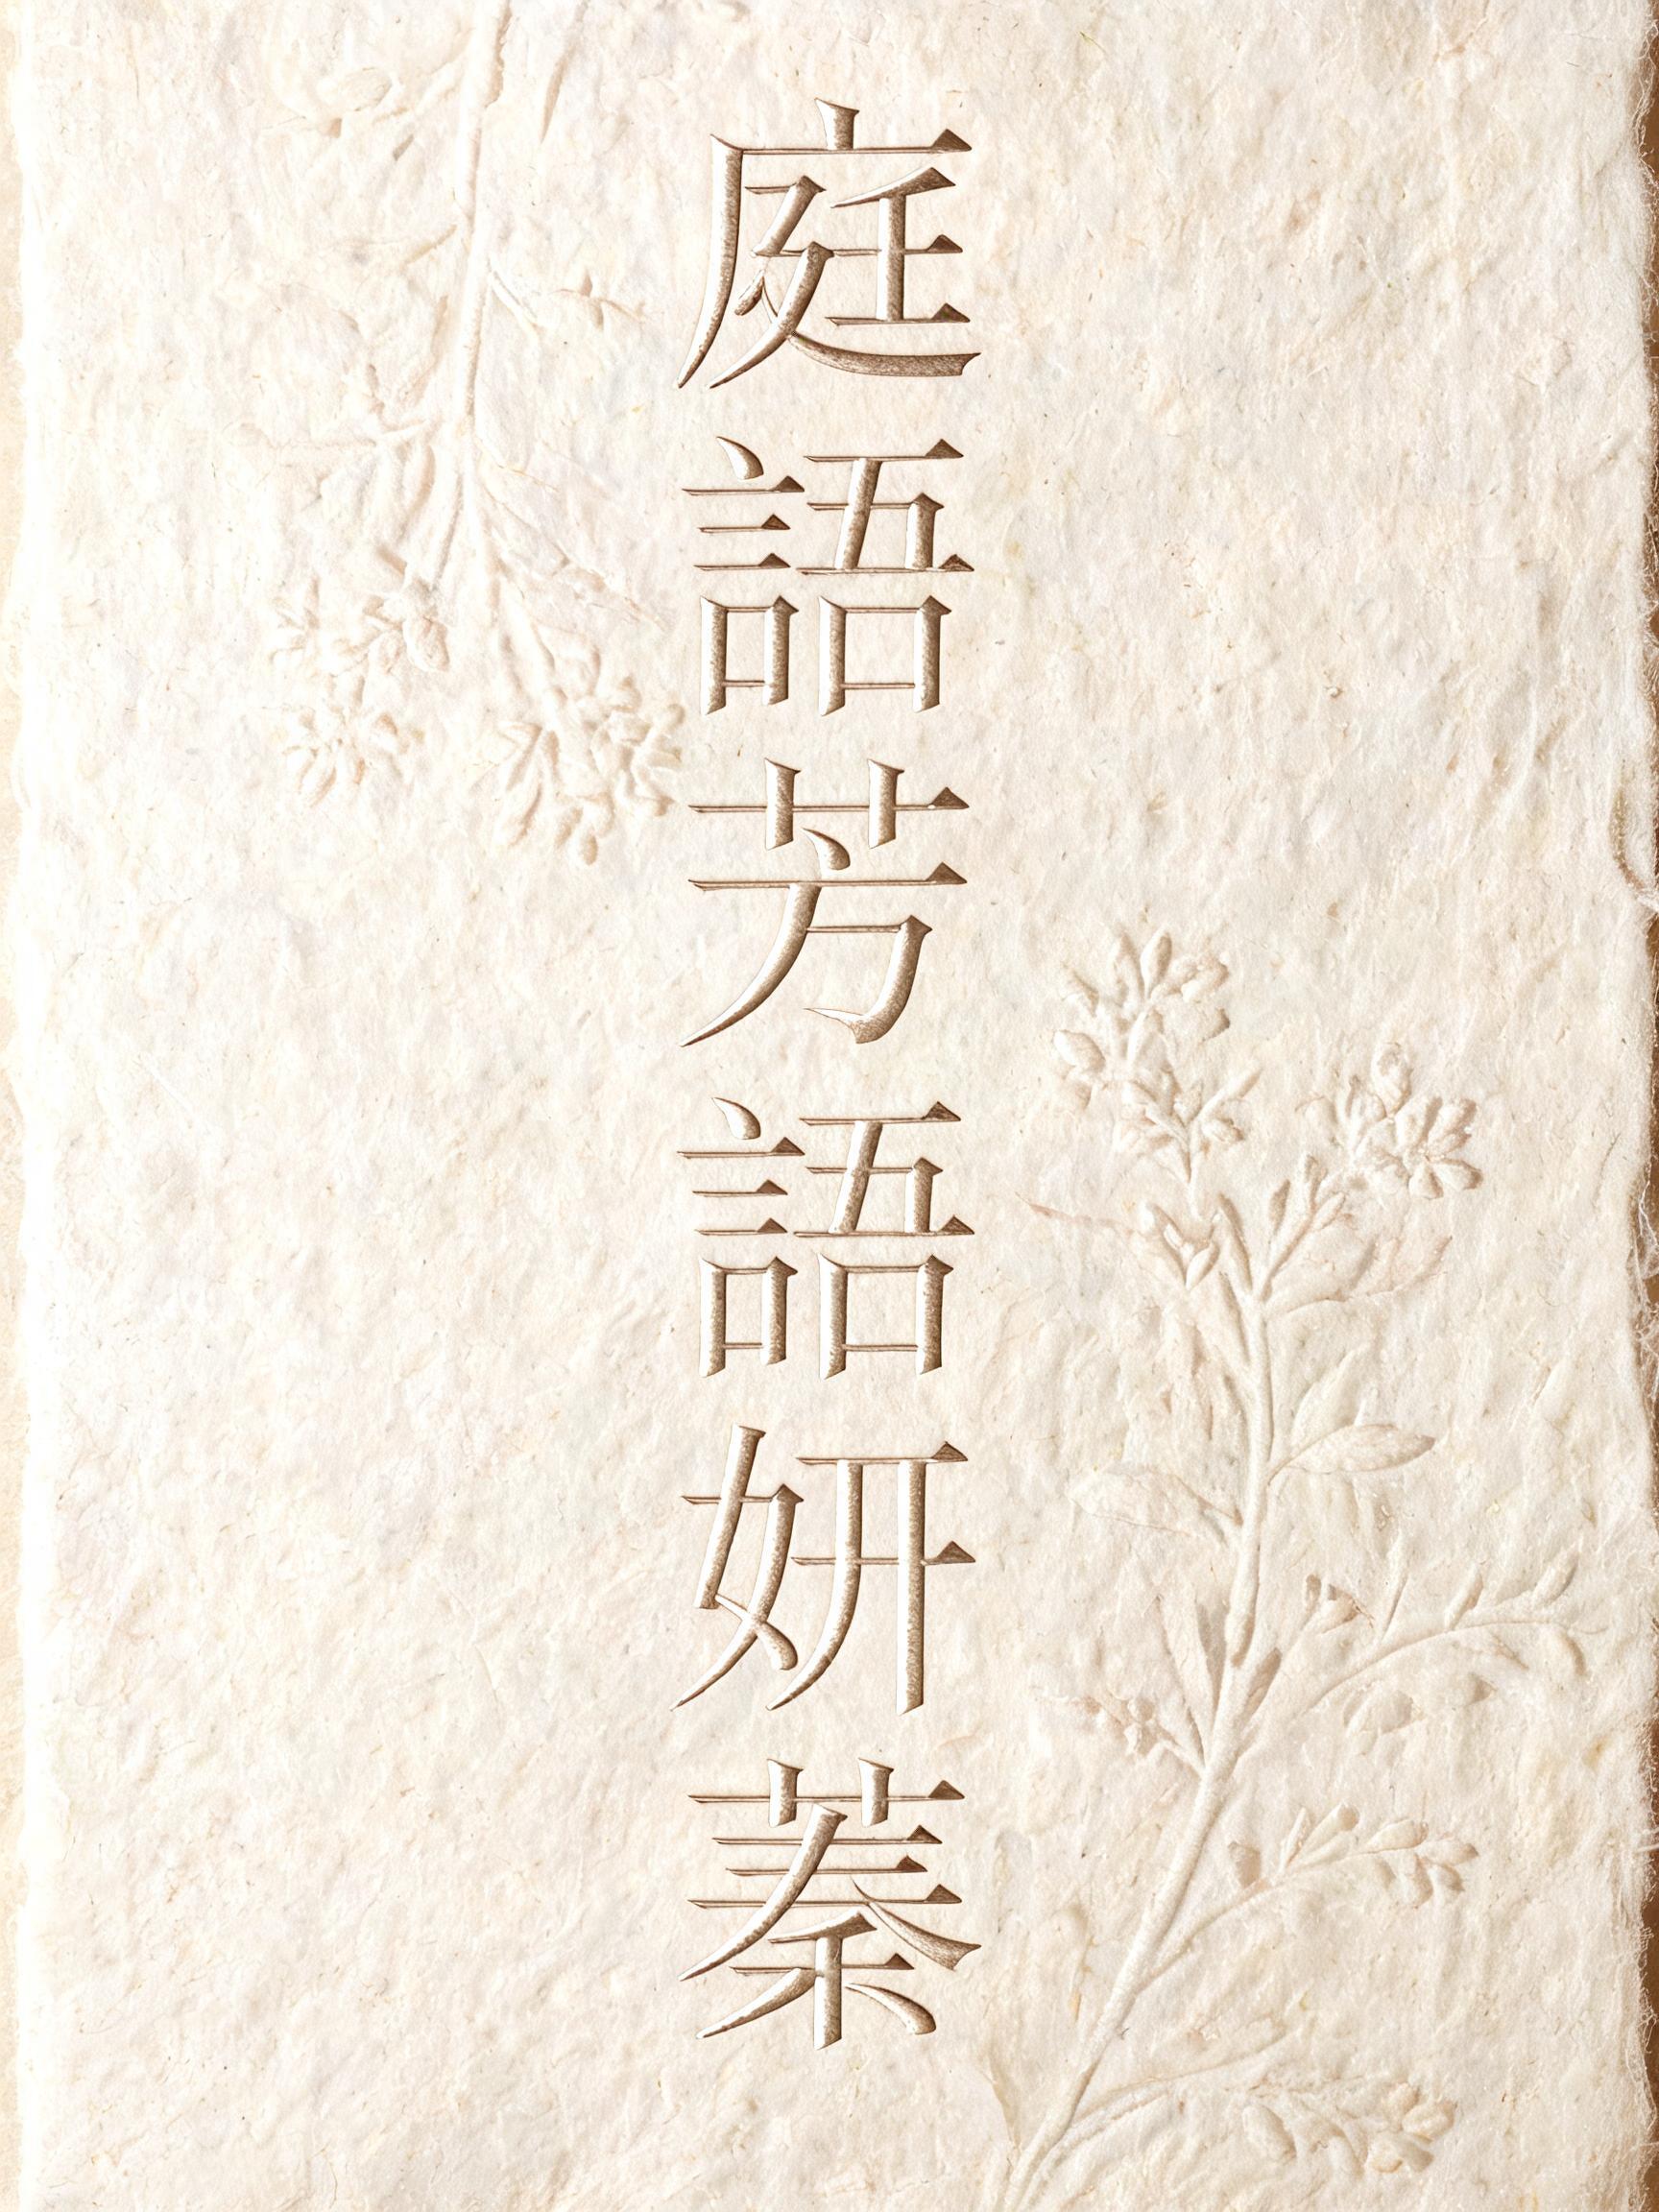 庭語芳語妍蓁